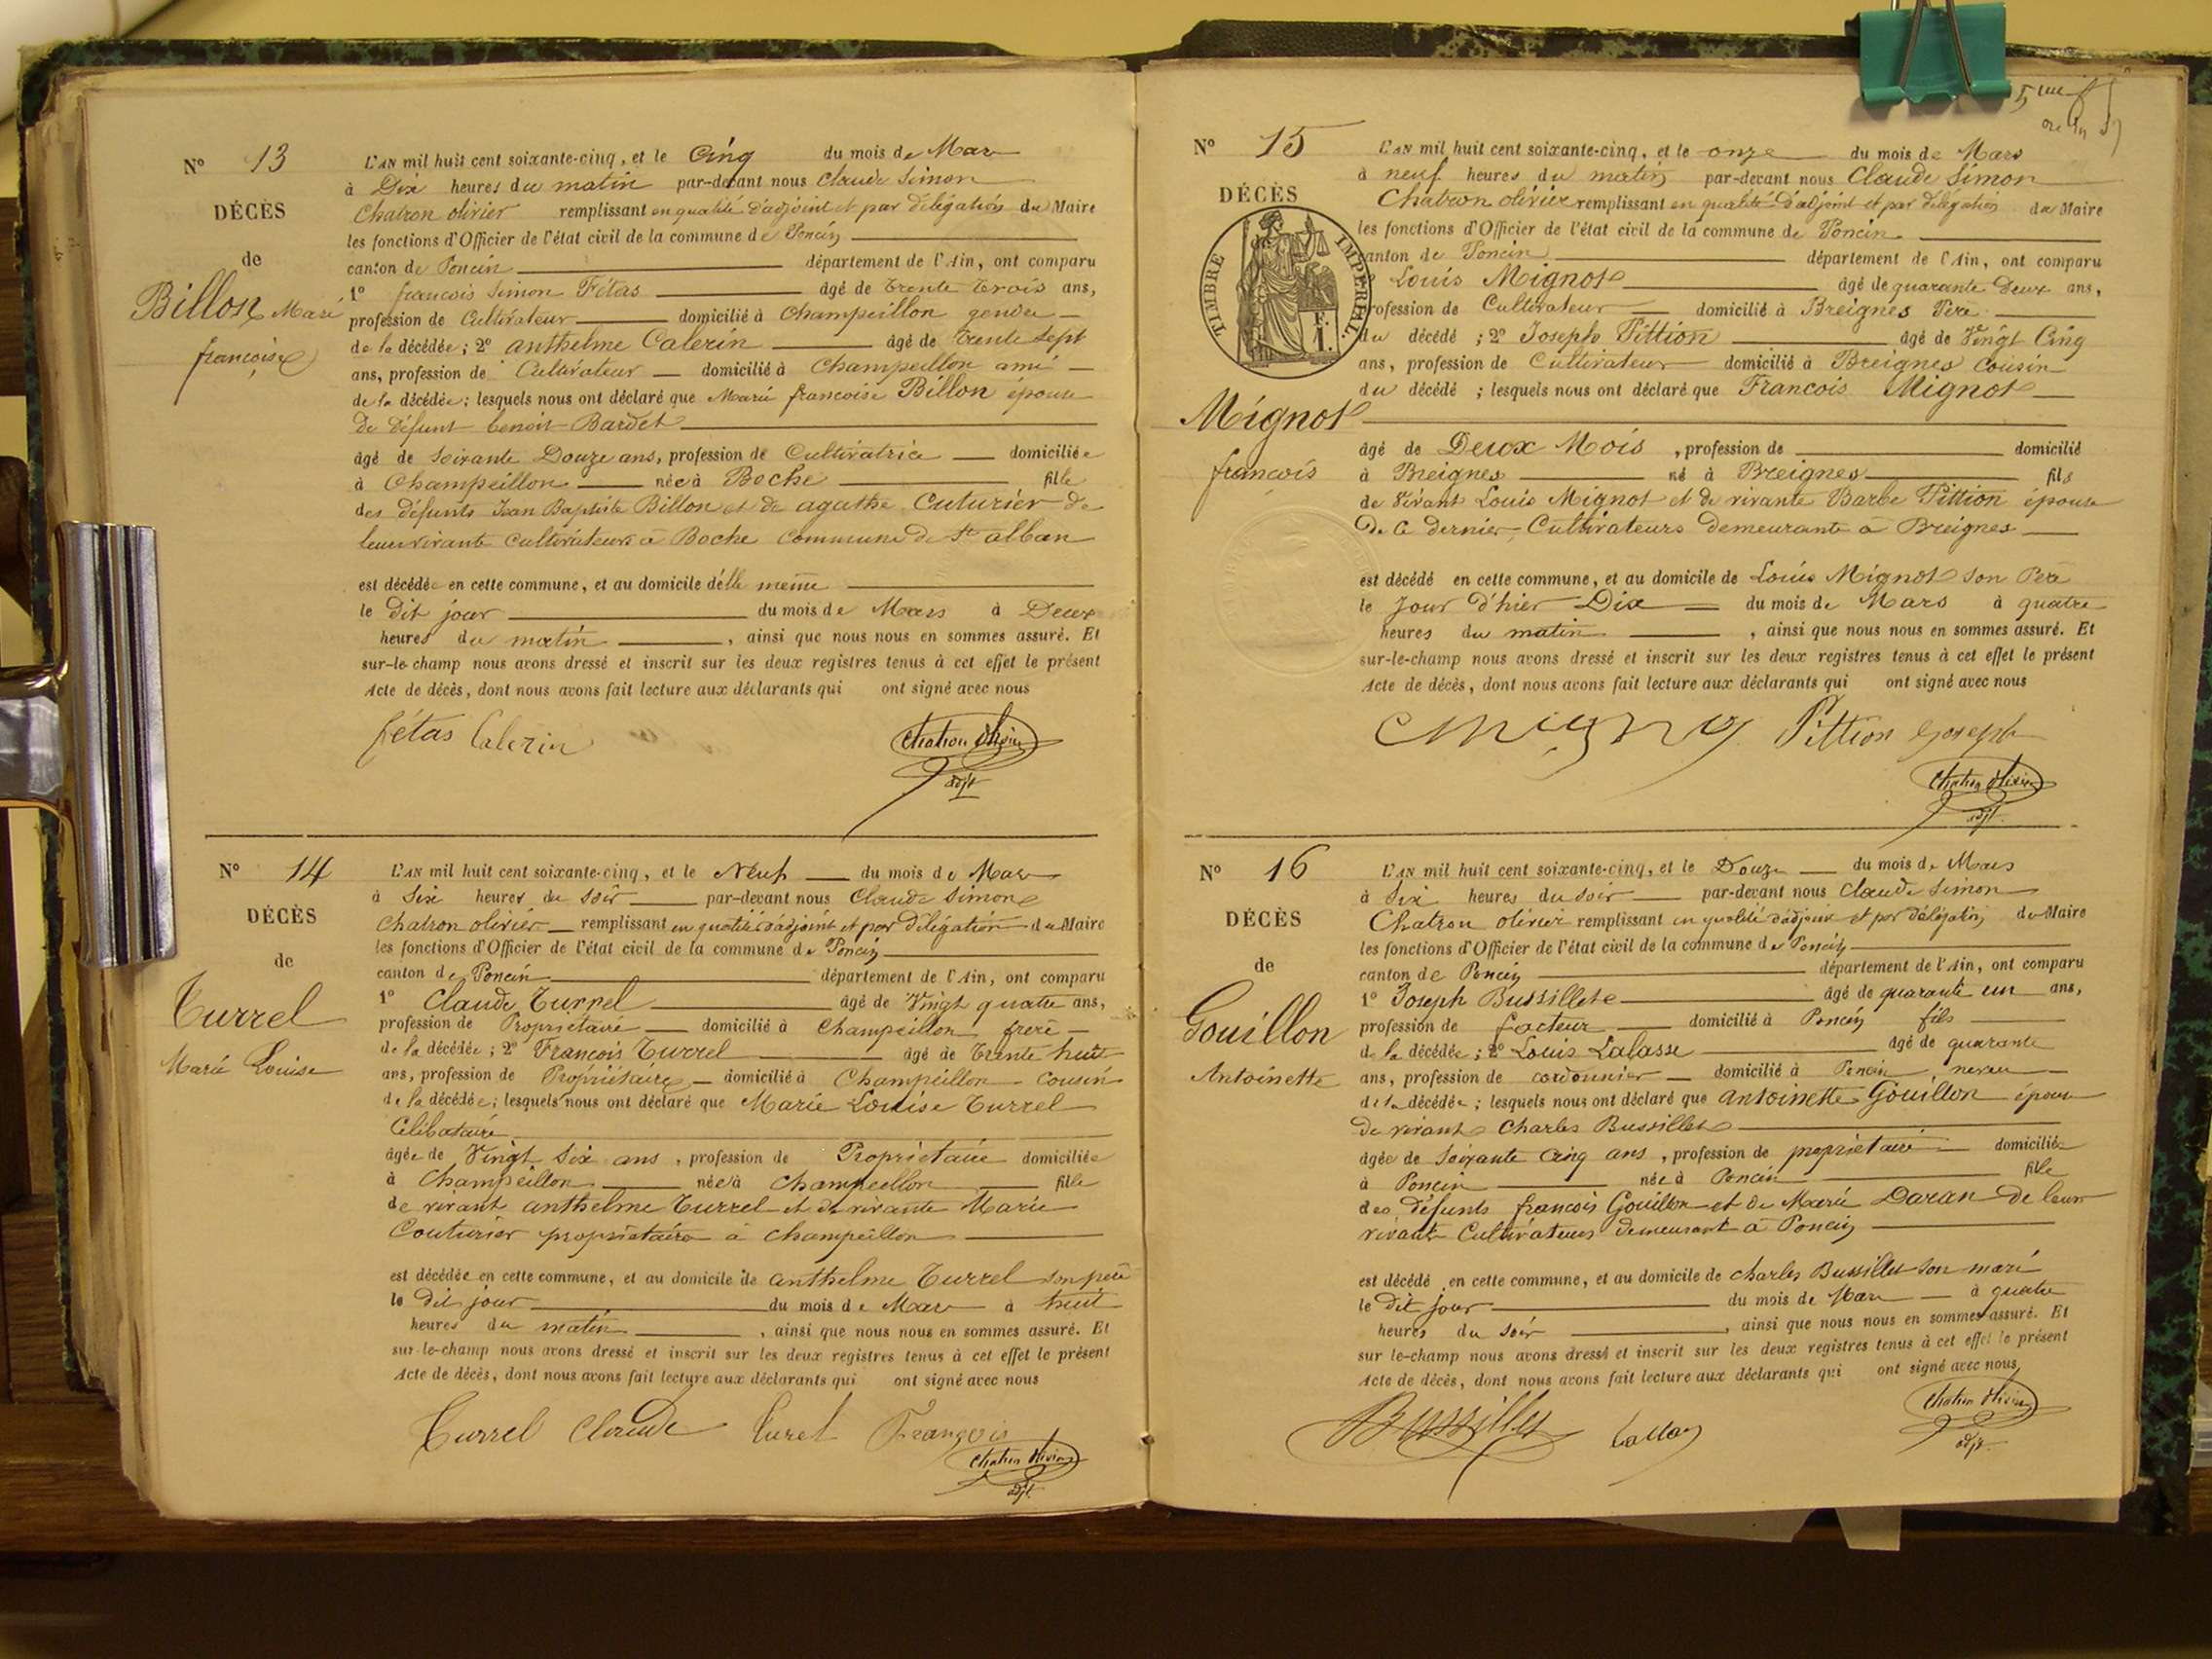 N° 13
DÉCÈS
de
Billon Marie
françoise
L'AN mil huit cent soixante-cinq, et le Cinq du mois de Mars
à Dix heures du matin par-devant nous Claude Simon
Chatron olivier remplissant en qualité d'adjoint et par délégation du Maire
les fonctions d'Officier de l'état civil de la commune de Poncin
canton de Poncin département de l'Ain, ont comparu
1° francois Simon Fétas âgé de trente trois ans,
profession de Cultivateur domicilié à Champeillon gendre
de la décédée; 2° anthelme Calerin âgé de trente sept
ans, profession de Cultivateur domicilié à Champeillon ami
de la décédée; lesquels nous ont déclaré que Marie francoise Billon épouse
de défunt benoit Bardet
âgé de soixante Douze ans, profession de Cultivatrice domiciliée
à Champeillon née à Boche fille
des défunts Jean Baptiste Billon et de agathe Cuturier de
leur vivant Cultivateurs à Boche Commune de St alban
est décédée en cette commune, et au domicile d'elle même
le dit jour du mois de Mars à Deux
heures du matin, ainsi que nous nous en sommes assuré. Et
sur-le-champ nous avons dressé et inscrit sur les deux registres tenus à cet effet le présent
Acte de décès, dont nous avons fait lecture aux déclarants qui ont signé avec nous
fétas Calerin Chatron Olivier
adjt
N° 14
DÉCÈS
de
Turrel
Marie Louise
L'AN mil huit cent soixante-cinq, et le Neuf du mois de Mars
à Six heures du soir par-devant nous Claude Simon
Chatron olivier remplissant en qualité d'adjoint et par délégation du Maire
les fonctions d'Officier de l'état civil de la commune de Poncin
canton de Poncin département de l'Ain, ont comparu
1° Claude Turrel âgé de Vingt quatre ans,
profession de Propriétaire domicilié à Champeillon frere
de la décédée; 2° François Turrel âgé de trente huit
ans, profession de Propriétaire domicilié à Champeillon Cousin
de la décédée; lesquels nous ont déclaré que Marie Louise Turrel
Célibataire
âgée de Vingt Six ans, profession de Propriétaire domiciliée
à Champeillon née à Champeillon fille
de vivant anthelme Turrel et de vivante Marie
Couturier propriétaire à Champeillon
est décédée en cette commune, et au domicile de anthelme Turrel son père
le dit jour du mois de Mars à huit
heures du matin, ainsi que nous nous en sommes assuré. Et
sur-le-champ nous avons dressé et inscrit sur les deux registres tenus à cet effet le présent
Acte de décès, dont nous avons fait lecture aux déclarants qui ont signé avec nous
Turrel Claude turel François
Chatron Olivier
adjt
N° 15
DÉCÈS
TIMBRE IMPERIAL
F.
1.
Mignot
françois
L'AN mil huit cent soixante-cinq, et le onze du mois de Mars
à neuf heures du matin par-devant nous Claude Simon
Chatron olivier remplissant en qualité d'adjoint et par délégation du Maire
les fonctions d'Officier de l'état civil de la commune de Poncin
canton de Poncin département de l'Ain, ont comparu
Louis Mignot âgé de quarante Deux ans,
profession de Cultivateur domicilié à Breignes Père
du décédé; 2° Joseph Pittion âgé de Vingt Cinq
ans, profession de Cultivateur domicilié à Breignes Cousin
du décédé; lesquels nous ont déclaré que Francois Mignot
âgé de Deux Mois, profession de domicilié
à Breignes né à Breignes fils
de Vivant Louis Mignot et de vivante Barbe Pittion épouse
De Ce dernier Cultivateurs demeurants à Breignes
est décédé en cette commune, et au domicile de Louis Mignot son Père
le Jour d'hier Dix du mois de Mars à quatre
heures du matin, ainsi que nous nous en sommes assuré. Et
sur-le-champ nous avons dressé et inscrit sur les deux registres tenus à cet effet le présent
Acte de décès, dont nous avons fait lecture aux déclarants qui ont signé avec nous
Pittion Joseph
Chatron Olivier
adjt
N° 16
DÉCÈS
de
Gouillon
Antoinette
L'AN mil huit cent soixante-cinq, et le Douze du mois de Mars
à Six heures du soir par-devant nous Claude Simon
Chatron olivier remplissant en qualité d'adjoint et par délégation du Maire
les fonctions d'Officier de l'état civil de la commune de Poncin
canton de Poncin département de l'Ain, ont comparu
1° Joseph Bussillet âgé de quarante un ans,
profession de facteur domicilié à Poncin fils
de la décédée; 2° Louis Lalasse âgé de quarante
ans, profession de cordonnier domicilié à Poncin neveu
de la décédée; lesquels nous ont déclaré que antoinette Gouillon épouse
de vivant Charles Bussillet
âgée de Soixante Cinq ans, profession de propriétaire domiciliée
à Poncin née à Poncin fille
des défunts françois Gouillon et de Marie Daran de leur
vivant Cultivateurs demeurant à Poncin
est décédé en cette commune, et au domicile de charles Bussillet son mari
le Dit jour du mois de Mars à quatre
heures du soir, ainsi que nous nous en sommes assuré. Et
sur le-champ nous avons dressé et inscrit sur les deux registres tenus à cet effet le présent
Acte de décès, dont nous avons fait lecture aux déclarants qui ont signé avec nous
Bussillet Chatron Olivier
adjt